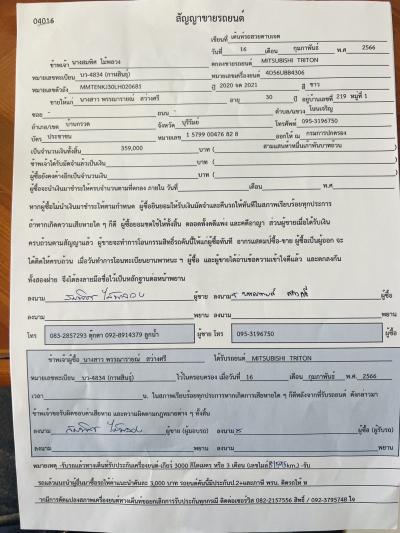 04016
สัญญาขายรถยนต์
เขียนที่ เต้นท์รถสวยตามเจต
วันที่ 16 เดือน กุมภาพันธ์ พ.ศ 2566
ข้าพเจ้า นางสมพิศ ไม้พลวง ตกลงขายรถยนต์ MITSUBISHI TRITON
หมายเลขทะเบียน บว-4834 (กาฬสินธุ์) หมายเลขเครื่องยนต์ 4D56UBB4306
หมายเลขตัวถัง MMTENKJ30LH020681 ปี 2020 จด 2021 สี ขาว
ขายให้แก่ นางสาว พรรณารายณ์ สว่างศรี อายุ 30 ปี อยู่บ้านเลขที่ 219 หมู่ที่ 1
ซอย - ถนน - ตำบล/แขวง โนนเจริญ
อำเภอ/เขต บ้านกรวด จังหวัด บุรีรัมย์ โทรศัพท์ 095-3196750
บัตร ประชาชน หมายเลข 1 5799 00476 82 8 ออกให้ ณ กรมการปกครอง
เป็นจำนวนเงินทั้งสิ้น 359,000 บาท ( สามแสนห้าหมื่นเก้าพันบาทถ้วน )
ข้าพเจ้าได้รับมัดจำแล้วเป็นเงิน บาท ( )
ผู้ซื้อยังคงค้างอีกเป็นจำนวนเงิน บาท ( )
ผู้ซื้อจะนำเงินมาชำระให้ครบจำนวนตามที่ตกลง ภายใน วันที่ เดือน พ.ศ
หากผู้ซื้อไม่นำเงินมาชำระให้ตามกำหนด ผู้ซื้อยินยอมให้ริบเงินมัดจำและคืนรถให้ทันทีในสภาพเรียบร้อยทุกประการ
หากเกิดความเสียหายใด ๆ ก็ดี ผู้ซื้อยอมชดใช้ให้ทั้งสิ้น ตลอดทั้งคดีแพ่ง และคดีอาญา ส่วนผู้ขายเมื่อได้รับเงิน
ครบถ้วนตามสัญญาแล้ว ผู้ขายจะทำการโอนกรรมสิทธิ์รถคันนี้ให้แก่ผู้ซื้อทันที
ได้คิดให้ครบถ้วน เมื่อวันทำการโอนทะเบียนยานพาหนะ ๆ ผู้ซื้อ และผู้ขายได้อ่านข้อความเข้าใจดีแล้ว และตกลงกัน
ทั้งสองฝ่าย จึงได้ลงลายมือชื่อไว้เป็นหลักฐานต่อหน้าพยาน
ลงนาม สมพิศ ไม้พลวง ผู้ขาย ลงนาม ผู้ซื้อ
ลงนาม พยาน ลงนาม พยาน
โทร 083-2857293 ตุ๊กตา 092-8914379 ลูกน้ำ ผู้ขาย โทร 095-3196750 ผู้ซื้อ
ข้าพเจ้าผู้ซื้อ นางสาว พรรณารายณ์ สว่างศรี ได้รับรถยนต์ MITSUBISHI TRITON
หมายเลขทะเบียน บว-4834 (กาฬสินธุ์) ไว้ในครอบครอง เมื่อวันที่ 16 เดือน กุมภาพันธ์ พ.ศ 2566
เวลา น. ในสภาพเรียบร้อยทุกประการหากเกิดการเสียหายใด ๆ ก็ดีหลังจากที่รับรถยนต์ ดังกล่าวมา
ข้าพเจ้าขอรับผิดชอบค่าเสียหาย และความผิดตามกฎหมายต่าง ๆ ทั้งสิ้น
ลงนาม สมพิศ ไม้พลวง ผู้ขาย (ผู้มอบรถ) ลงนาม ผู้ซื้อ (ผู้รับรถ)
ลงนาม พยาน ลงนาม พยาน
หมายเหตุ -รับรถแล้วทางเต็นท์รับประกันเครื่องยนต์-เกียร์ 3000 กิโลเมตร หรือ 3 เดือน (เลขไมล์ km.) -รับ
รถแล้วแนะนำผู้อื่นมาซื้อรถให้ค่าแนะนำคันละ 3,000 บาท รถยนต์คันนี้มีประกันป.2+และภาษี พรบ.
หากมีการดัดแปลงสภาพเครื่องยนต์ทางเต็นท์ขอยกเลิกการรับประกันทุกกรณี ติดต่อ 082-2157556 / 092-3795748